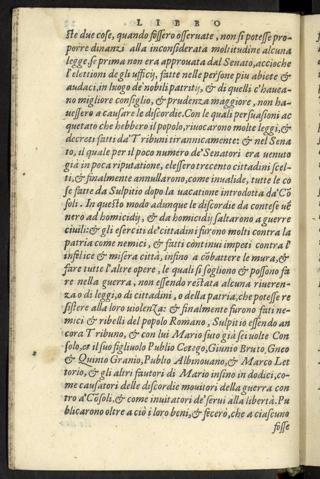 LIBRO
ste due cose, quando fossero osseruate, non si potesse pro-
porre dinanzi alla inconsiderata moltitudine alcuna
legge, se prima non era approuata dal Senato, accioche
l'elettioni de gli ufficij, fatte nelle persone piu abiete &
audaci, in luogo de nobili patritij, & di quelli c'hauea-
no migliore consiglio, & prudenza maggiore, non ha-
uessero a causare le discordie. Con le quali persuasioni ac
quetato che hebbero il popolo, riuocarono molte leggi, &
decreti fatti da Tribuni tirannicamente: & nel Sena
to, il quale per il poco numero de Senatori era uenuto
già in poca riputatione, elessero trecento cittadini scel-
ti, & finalmente annullarono, come inualide, tutte le co
se fatte da Sulpitio dopo la uacatione introdotta da Cō
soli. In questo modo adunque le discordie da contese uē
nero ad homicidij, & da homicidij saltarono a guerre
ciuili: & gli eserciti de'cittadini furono molti contra la
patria come nemici, & fatti continui impeti contra l'
infelice & misera città, insino a cōbattere le mura, &
fare tutte l'altre opere, le quali si sogliono & possono fa
re nella guerra, non essendo restata alcuna riueren-
za o di leggi, o di cittadini, o della patria, che potesse re
sistere alla loro uiolenza: & finalmente furono fatti ne-
mici & ribelli del popolo Romano, Sulpitio essendo an
cora Tribuno, & con lui Mario suto già sei uolte Con
solo, et il suo figliuolo Publio Cetego, Giunio Bruto Gneo
& Quinto Granio, Publio Albinouano, & Marco Let
torio, & gli altri fautori di Mario insino in dodici, co-
me causatori delle discordie mouitori della guerra con
tro a'Cōsoli, & come inuitatori de'serui alla libertà. Pu
blicarono oltre a ciò i loro beni, & fecerò, che a ciascuno
fosse